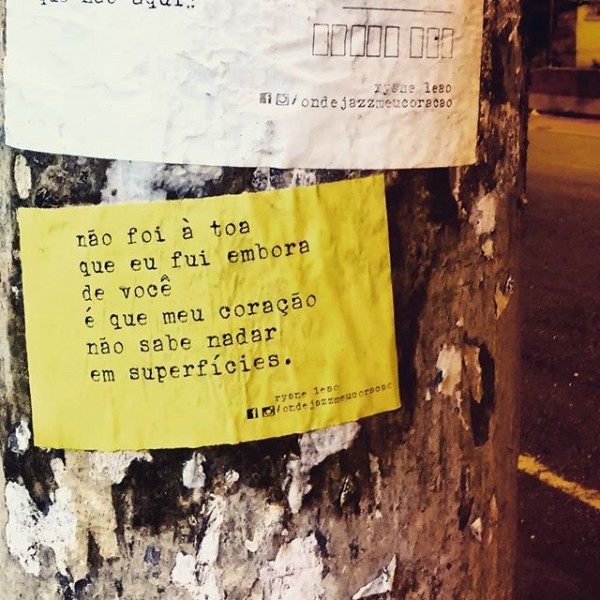 que não aqui.
ryane leao
/ondejazzmeucoracao
não foi à toa
que eu fui embora
de você
é que meu coração
não sabe nadar
em superfícies.
ryane leao
/ondejazzmeucoracao